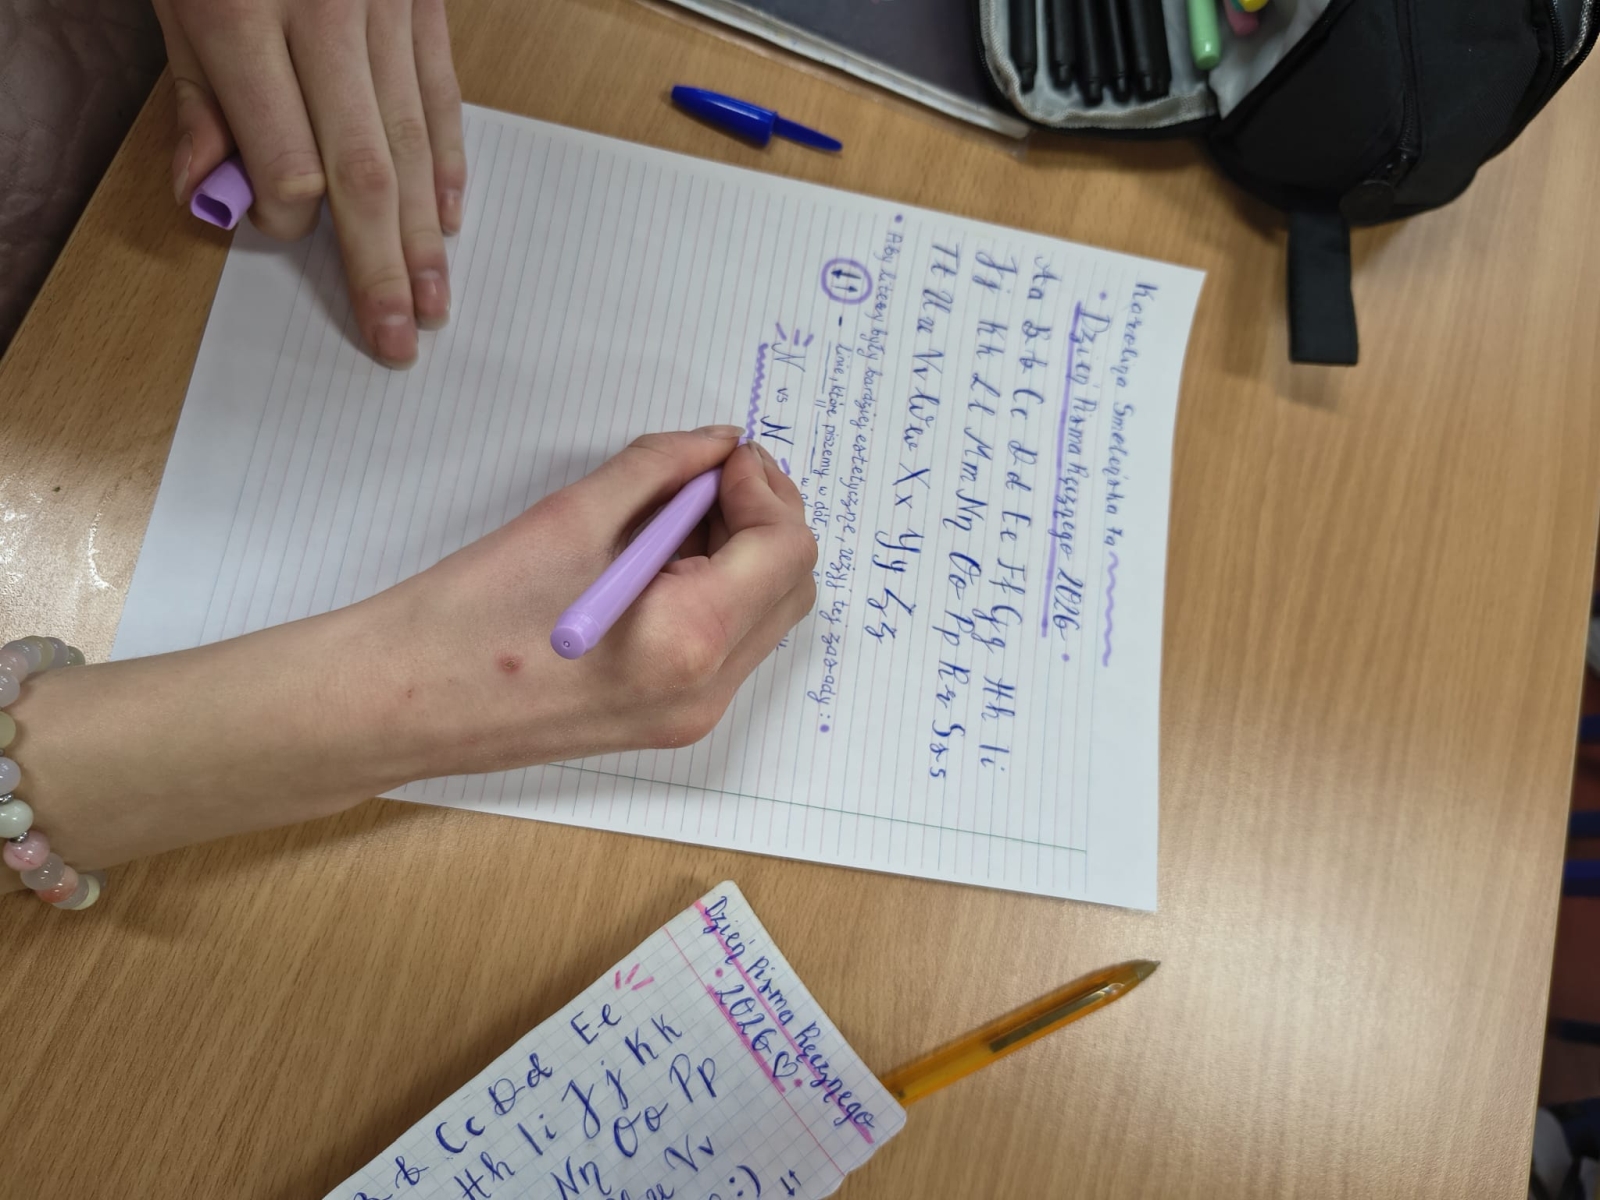 Karolina Smelińska 7a
• Dzień Pisma Ręcznego 2026 •
Aa Bb Cc Dd Ee Ff Gg Hh Ii
Jj Kk Ll Mm Nn Oo Pp Rr Ss
Tt Uu Vv Ww Xx Yy Zz
• Aby litery były bardziej estetyczne, użyj tej zasady: •
- linie, które piszemy w dół
N vs N
Dzień Pisma Ręcznego
• 2026 ♡ •
b Cc Dd Ee
Hh Ii Jj Kk
Nn Oo Pp
Vv
:)